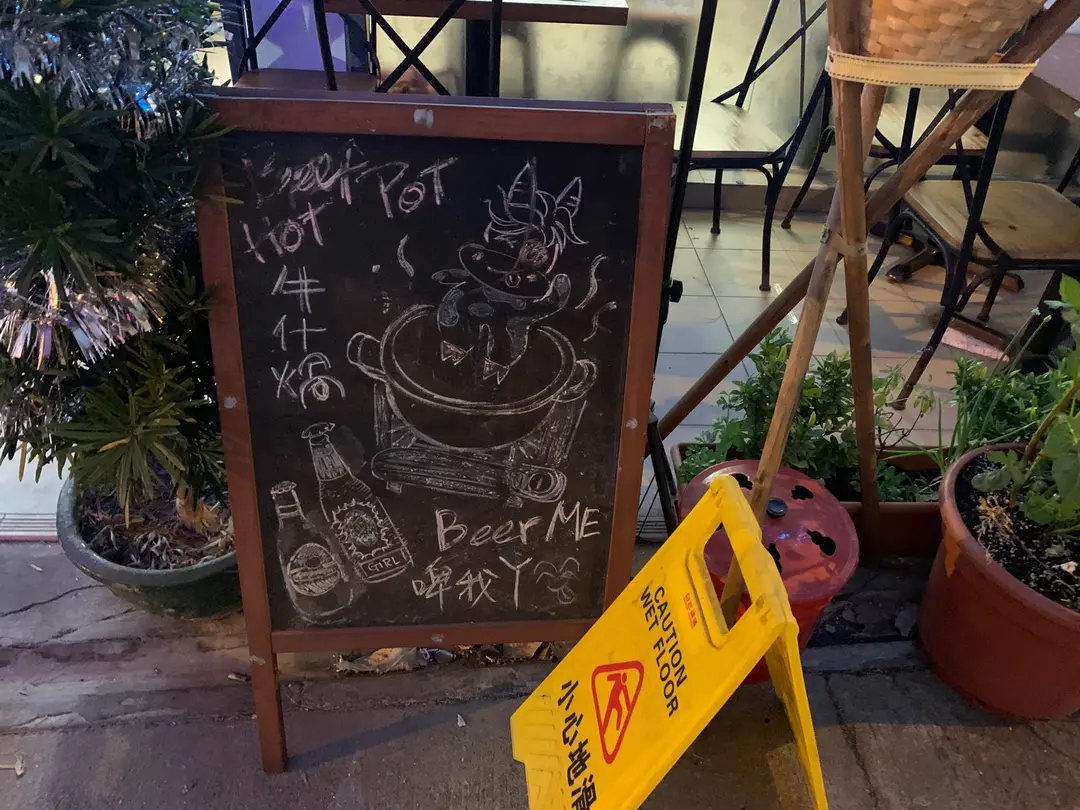 Beef POT
HOT
牛
什
煲
GIRL
Beer ME
啤我丫
CAUTION
WET FLOOR
小心地滑